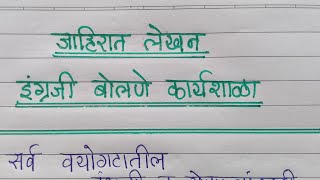 जाहिरात लेखन
इंग्रजी बोलणे कार्यशाळा
सर्व वयोगटातील